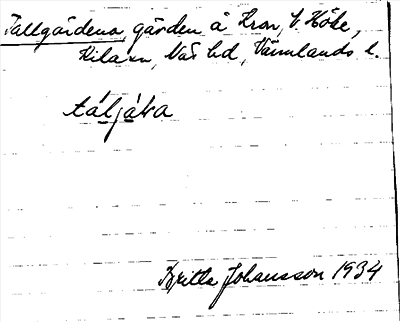 Tallgårdena, gården å Kron, V. Höke,
Kila sn, Näs hd, Värmlands l.
táljáka
Britta Johansson 1934